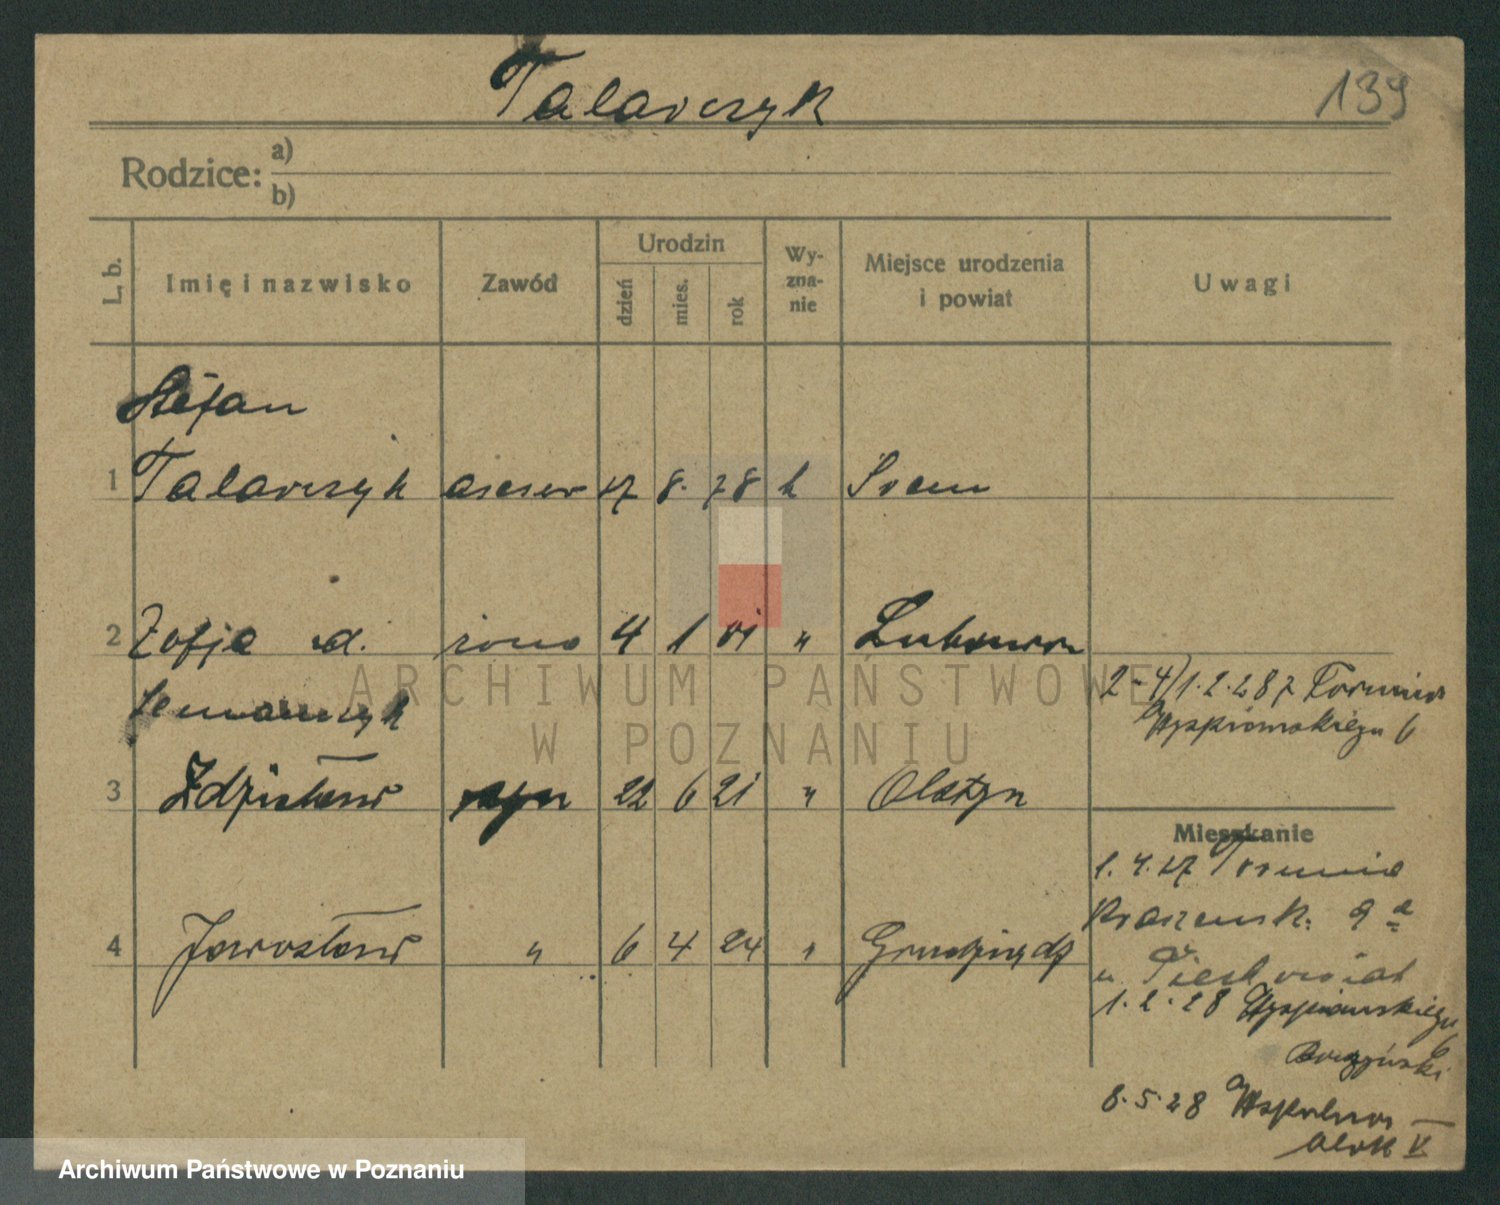 Talarczyk
139
Rodzice:
a)
b)
L. b.
Imię i nazwisko
Zawód
Urodzin
dzień
mies.
rok
Wy-
zna-
nie
Miejsce urodzenia
i powiat
Uwagi
Stefan
1 Talarczyk asesor 17 8. 78 k Śrem
2 Zofja d. żona 4 1 "
3 Zdzisław syn 22 6 21 " Olsztyn
4 Jarosław " 6 4 24 " Grudziądz
2-4) 1.2.287 Torunia
Wyspiańskiego 6
Mieszkanie
1.4.27 Torunia
Kraszewsk. 9a
u
1.2.28 Wyspiańskiego 6
8.5.28 Wspólna
blok V
ARCHIWUM PAŃSTWOWE
W POZNANIU
Archiwum Państwowe w Poznaniu